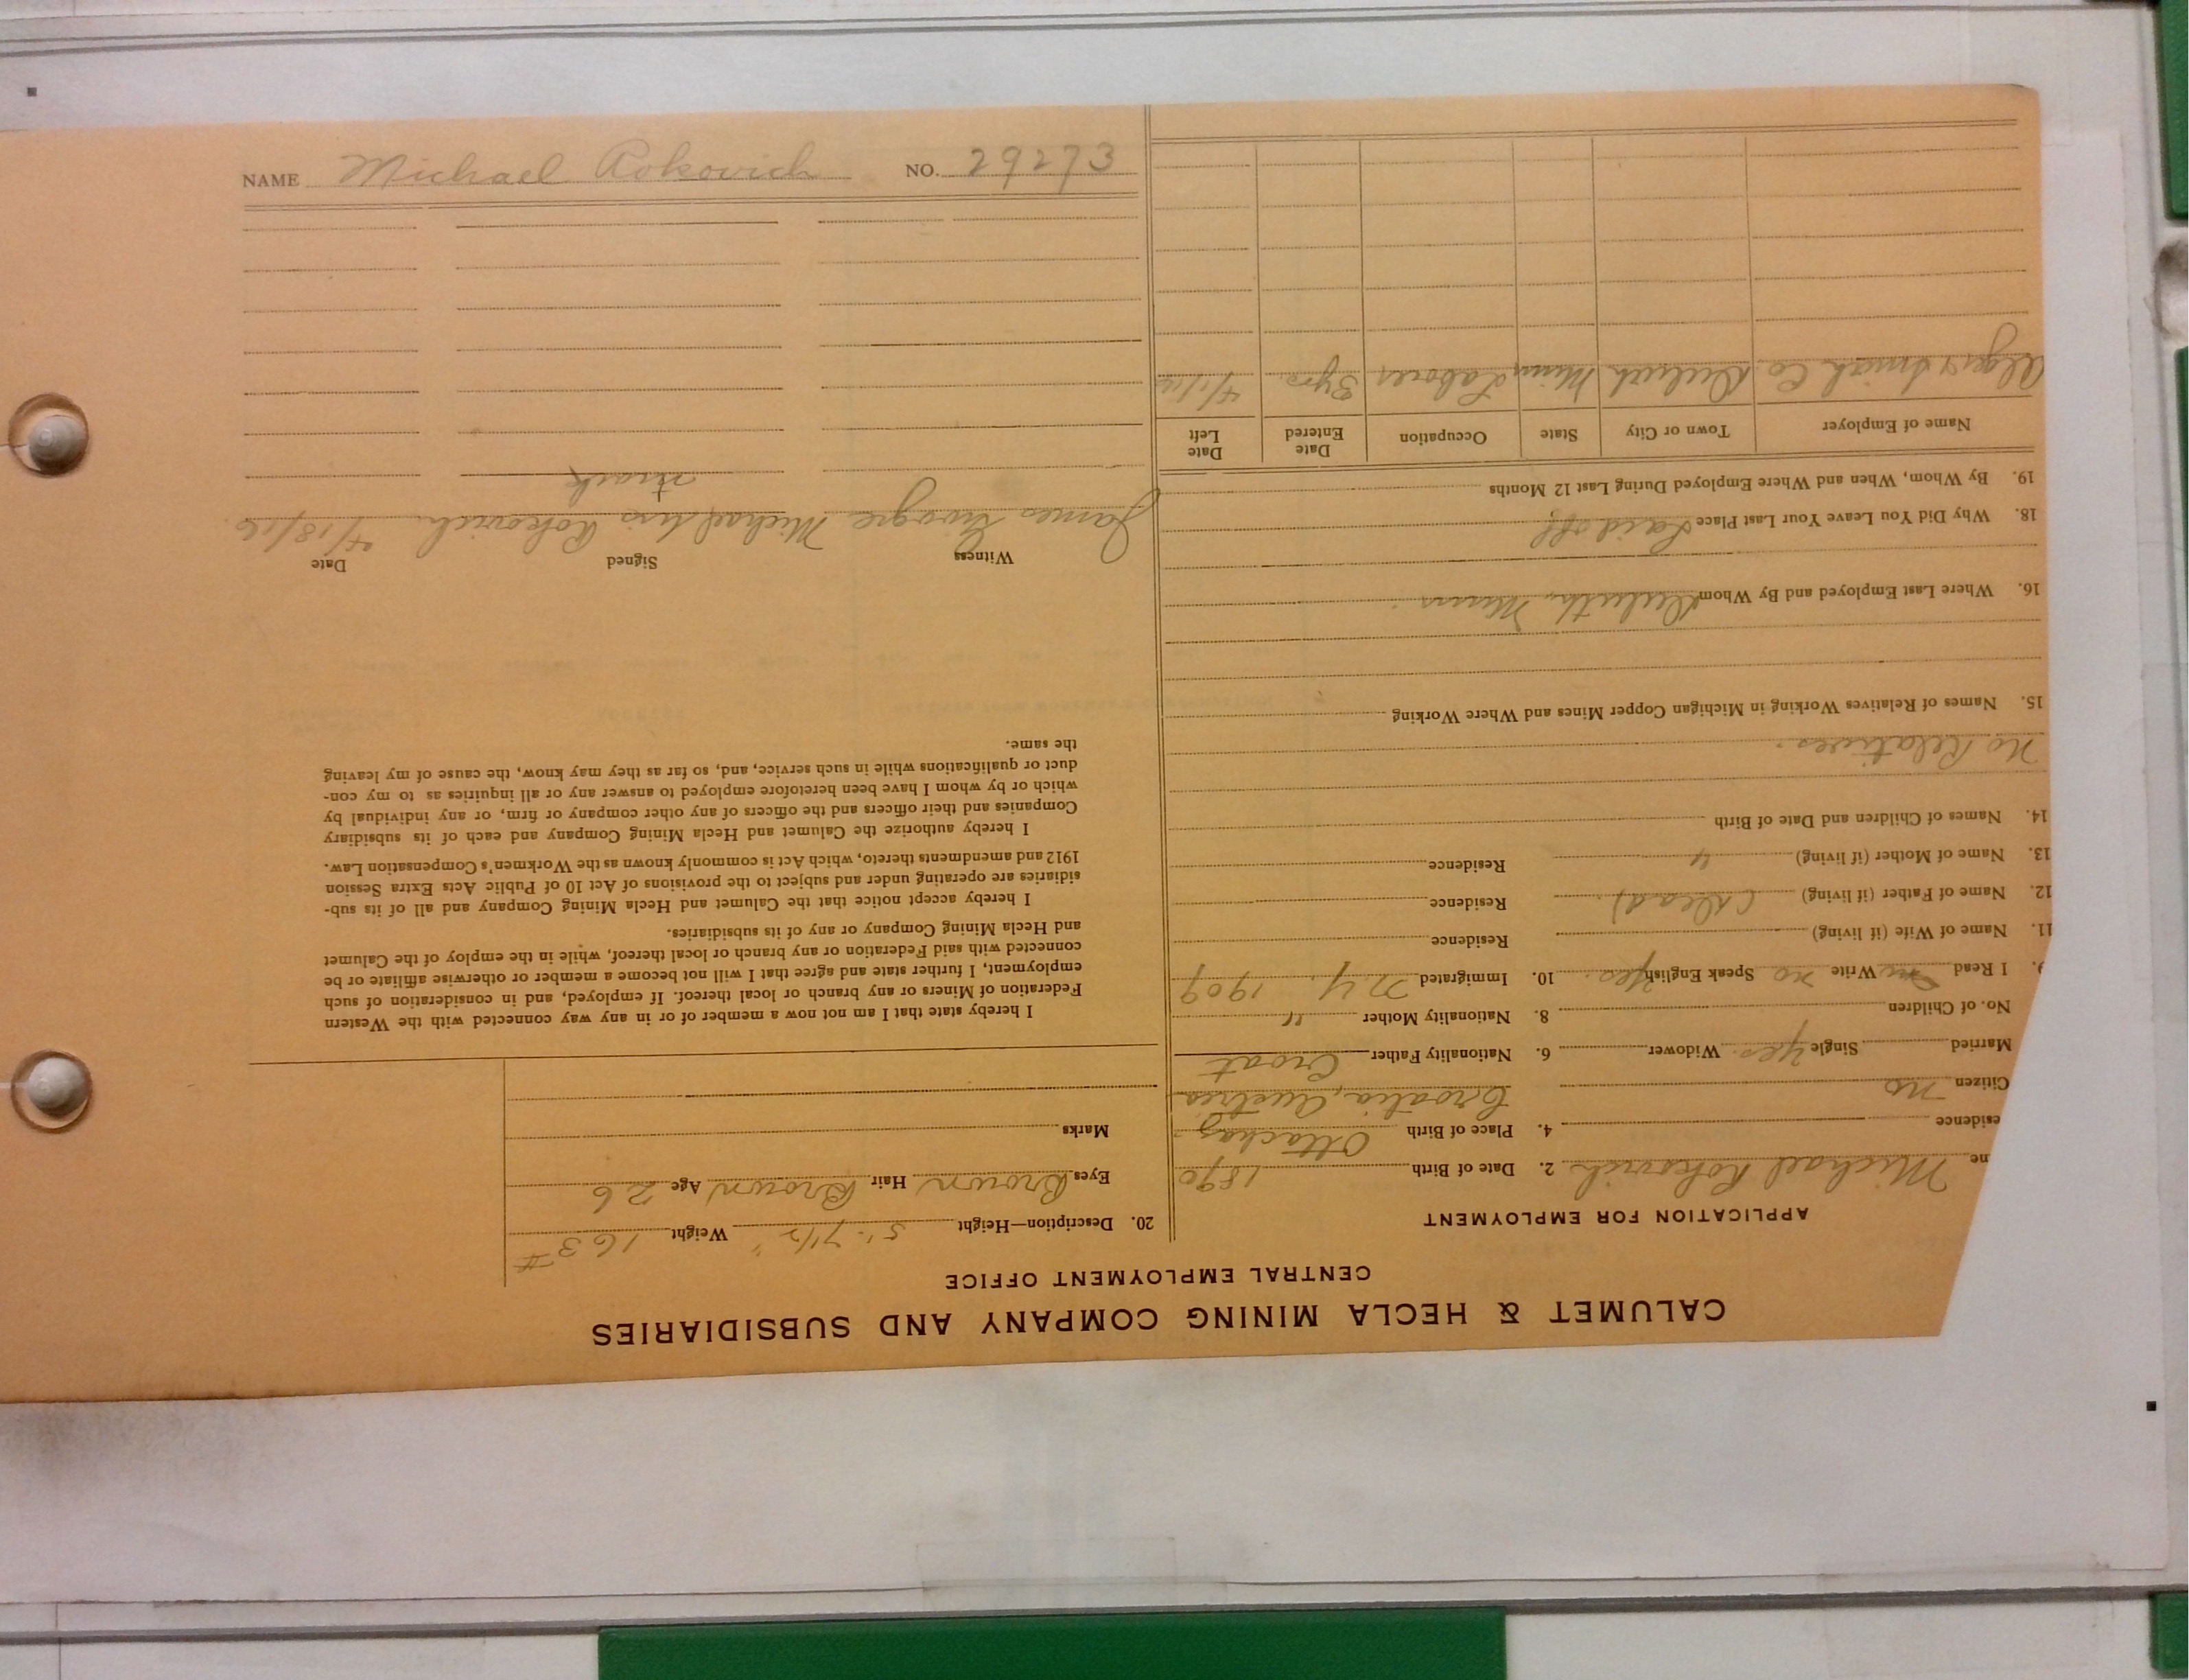 CALUMET & HECLA MINING COMPANY AND SUBSIDIARIES
CENTRAL EMPLOYMENT OFFICE
APPLICATION FOR EMPLOYMENT
me Michael Rokovich 2. Date of Birth 1890
esidence 4. Place of Birth
Citizen no Croatia, Austria
Married Single Yes. Widower 6. Nationality Father Croat
No. of Children 8. Nationality Mother "
9. I Read no Write no Speak English Yes. 10. Immigrated N.Y. 1909
11. Name of Wife (if living) Residence
12. Name of Father (if living) (Dead). Residence
13. Name of Mother (if living) " Residence
14. Names of Children and Date of Birth
No Relatives.
15. Names of Relatives Working in Michigan Copper Mines and Where Working
16. Where Last Employed and By Whom Duluth, Minn.
18. Why Did You Leave Your Last Place Laid off
19. By Whom, When and Where Employed During Last 12 Months
Name of Employer Town or City State Occupation Date Entered Date Left
Alger Smith Co. Duluth Minn Laborer 3 yrs. 4/1/16
20. Description—Height 5'- 7 1/2" Weight 163#
Eyes Brown Hair Brown Age 26
Marks
I hereby state that I am not now a member of or in any way connected with the Western
Federation of Miners or any branch or local thereof. If employed, and in consideration of such
employment, I further state and agree that I will not become a member or otherwise affiliate or be
connected with said Federation or any branch or local thereof, while in the employ of the Calumet
and Hecla Mining Company or any of its subsidiaries.
I hereby accept notice that the Calumet and Hecla Mining Company and all of its sub-
sidiaries are operating under and subject to the provisions of Act 10 of Public Acts Extra Session
1912 and amendments thereto, which Act is commonly known as the Workmen's Compensation Law.
I hereby authorize the Calumet and Hecla Mining Company and each of its subsidiary
Companies and their officers and the officers of any other company or firm, or any individual by
which or by whom I have been heretofore employed to answer any or all inquiries as to my con-
duct or qualifications while in such service, and, so far as they may know, the cause of my leaving
the same.
Witness Signed Date
James Michael his Rokovich 4/18/16
mark
NAME Michael Rokovich NO. 29273